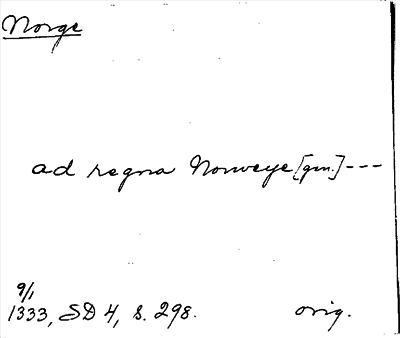 Norge
ad regna Norweye [gen.] ---
9/1
1333, SD 4, s. 298. orig.